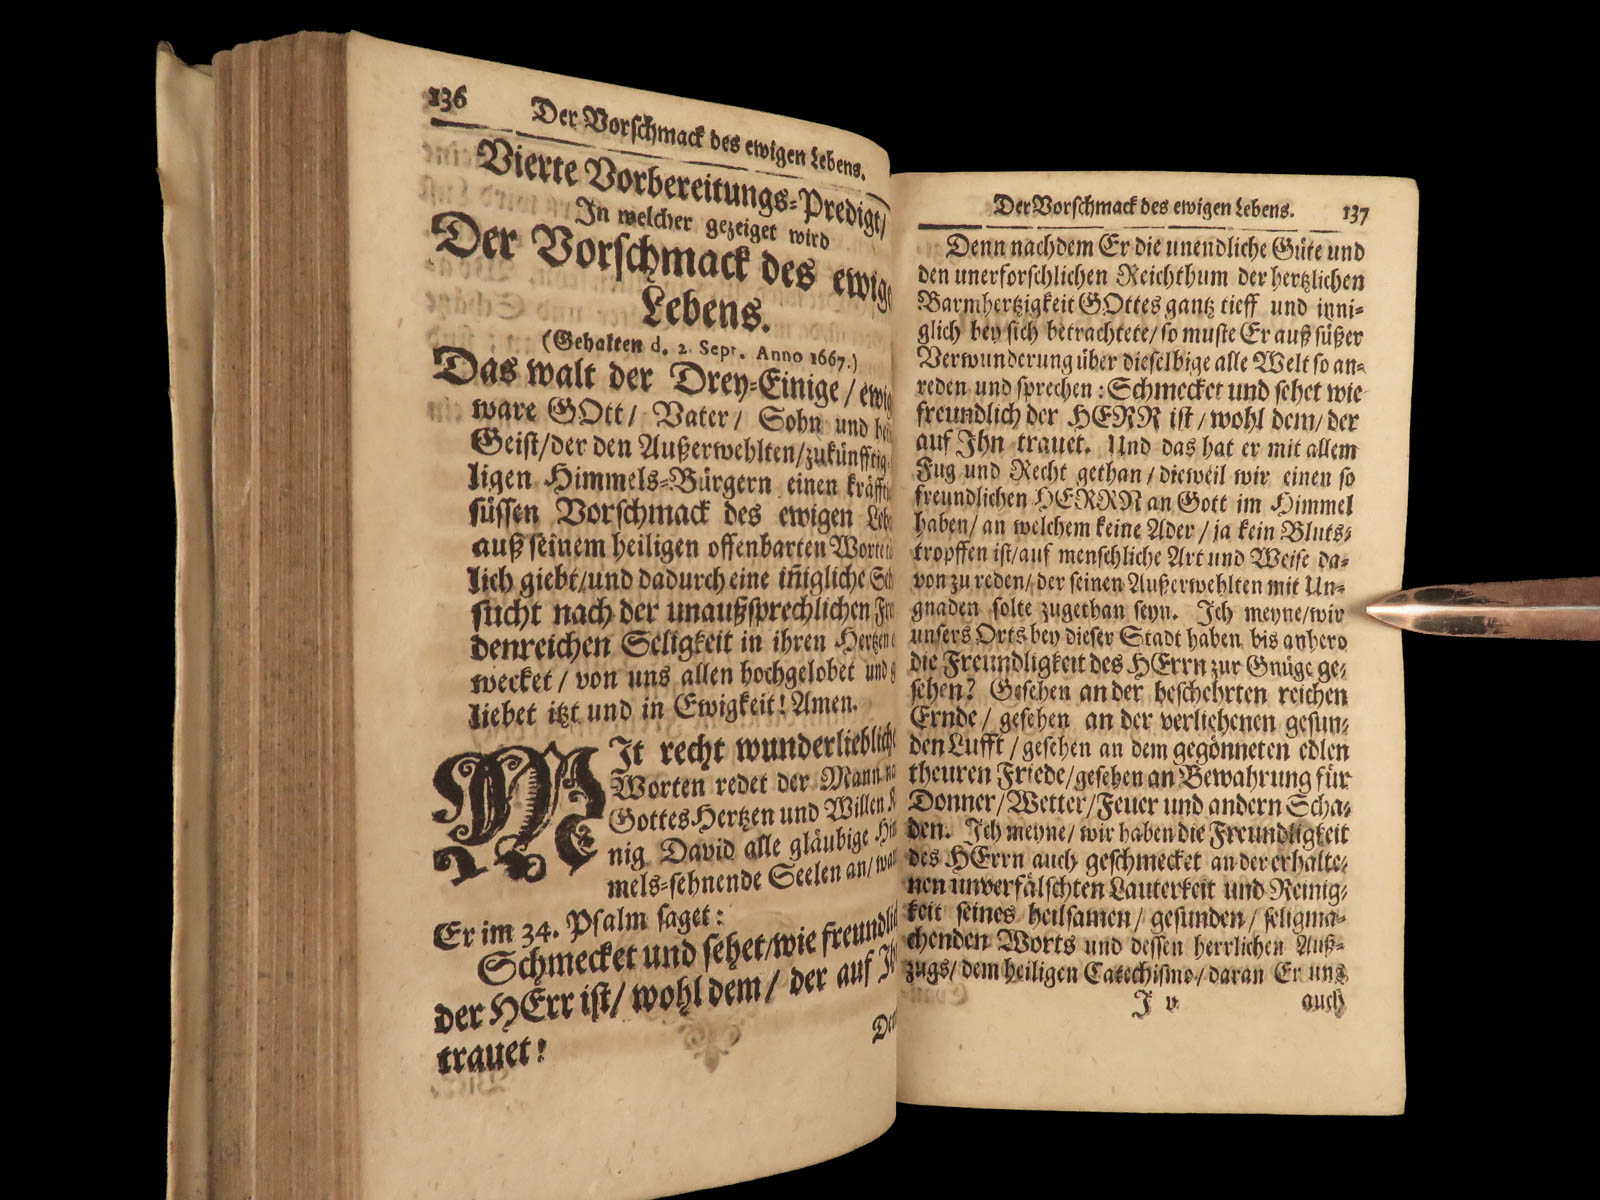 136 Der Vorschmack des ewigen Lebens.
Vierte Vorbereitungs-Predigt/
In welcher gezeiget wird
Der Vorschmack des ewige
Lebens.
(Gehalten d. 2. Sept. Anno 1667.)
Das walt der Drey-Einige/ ewig
ware GOtt/ Vater/ Sohn und hei
Geist/der den Außerwehlten/zukünfftig
ligen Himmels-Bürgern einen kräffti
süssen Vorschmack des ewigen Lebe
auß seinem heiligen offenbarten Worte
lich giebt/und dadurch eine iñigliche Seh
sucht nach der unaußsprechlichen Freu
denreichen Seligkeit in ihren Hertzen
wecket/ von uns allen hochgelobet und g
liebet itzt und in Ewigkeit! Amen.
MIt recht wunderliebliche
Worten redet der Mann na
Gottes Hertzen und Willen K
nig David alle gläubige Him
mels-sehnende Seelen an/ wan
Er im 34. Psalm saget:
Schmecket und sehet/wie freundlich
der HErr ist/ wohl dem/ der auf Ih
trauet!
Den
Der Vorschmack des ewigen Lebens. 137
Denn nachdem Er die unendliche Güte und
den unerforschlichen Reichthum der hertzlichen
Barmhertzigkeit GOttes gantz tieff und inni-
glich bey sich betrachtete/ so muste Er auß süßer
Verwunderung über dieselbige alle Welt so an-
reden und sprechen: Schmecket und sehet wie
freundlich der HERR ist/ wohl dem/ der
auf Ihn trauet. Und das hat er mit allem
Fug und Recht gethan/ dieweil wir einen so
freundlichen HERRN an Gott im Himmel
haben/ an welchem keine Ader/ ja kein Bluts-
tropffen ist/auf menschliche Art und Weise da-
von zu reden/ der seinen Außerwehlten mit Un-
gnaden solte zugethan seyn. Ich meyne/wir
unsers Orts bey dieser Stadt haben bis anhero
die Freundligkeit des HErrn zur Gnüge ge-
sehen? Gesehen an der beschehrten reichen
Ernde/ gesehen an der verliehenen gesun-
den Lufft/ gesehen an dem gegönneten edlen
theuren Friede/gesehen an Bewahrung für
Donner/Wetter/Feuer und andern Scha-
den. Ich meyne/ wir haben die Freundligkeit
des HErrn auch geschmecket an der erhalte-
nen unverfälschten Lauterkeit und Reinig-
keit seines heilsamen/ gesunden/ seligma-
chenden Worts und dessen herrlichen Auß-
zugs/ dem heiligen Catechismo/ daran Er uns
J v auch